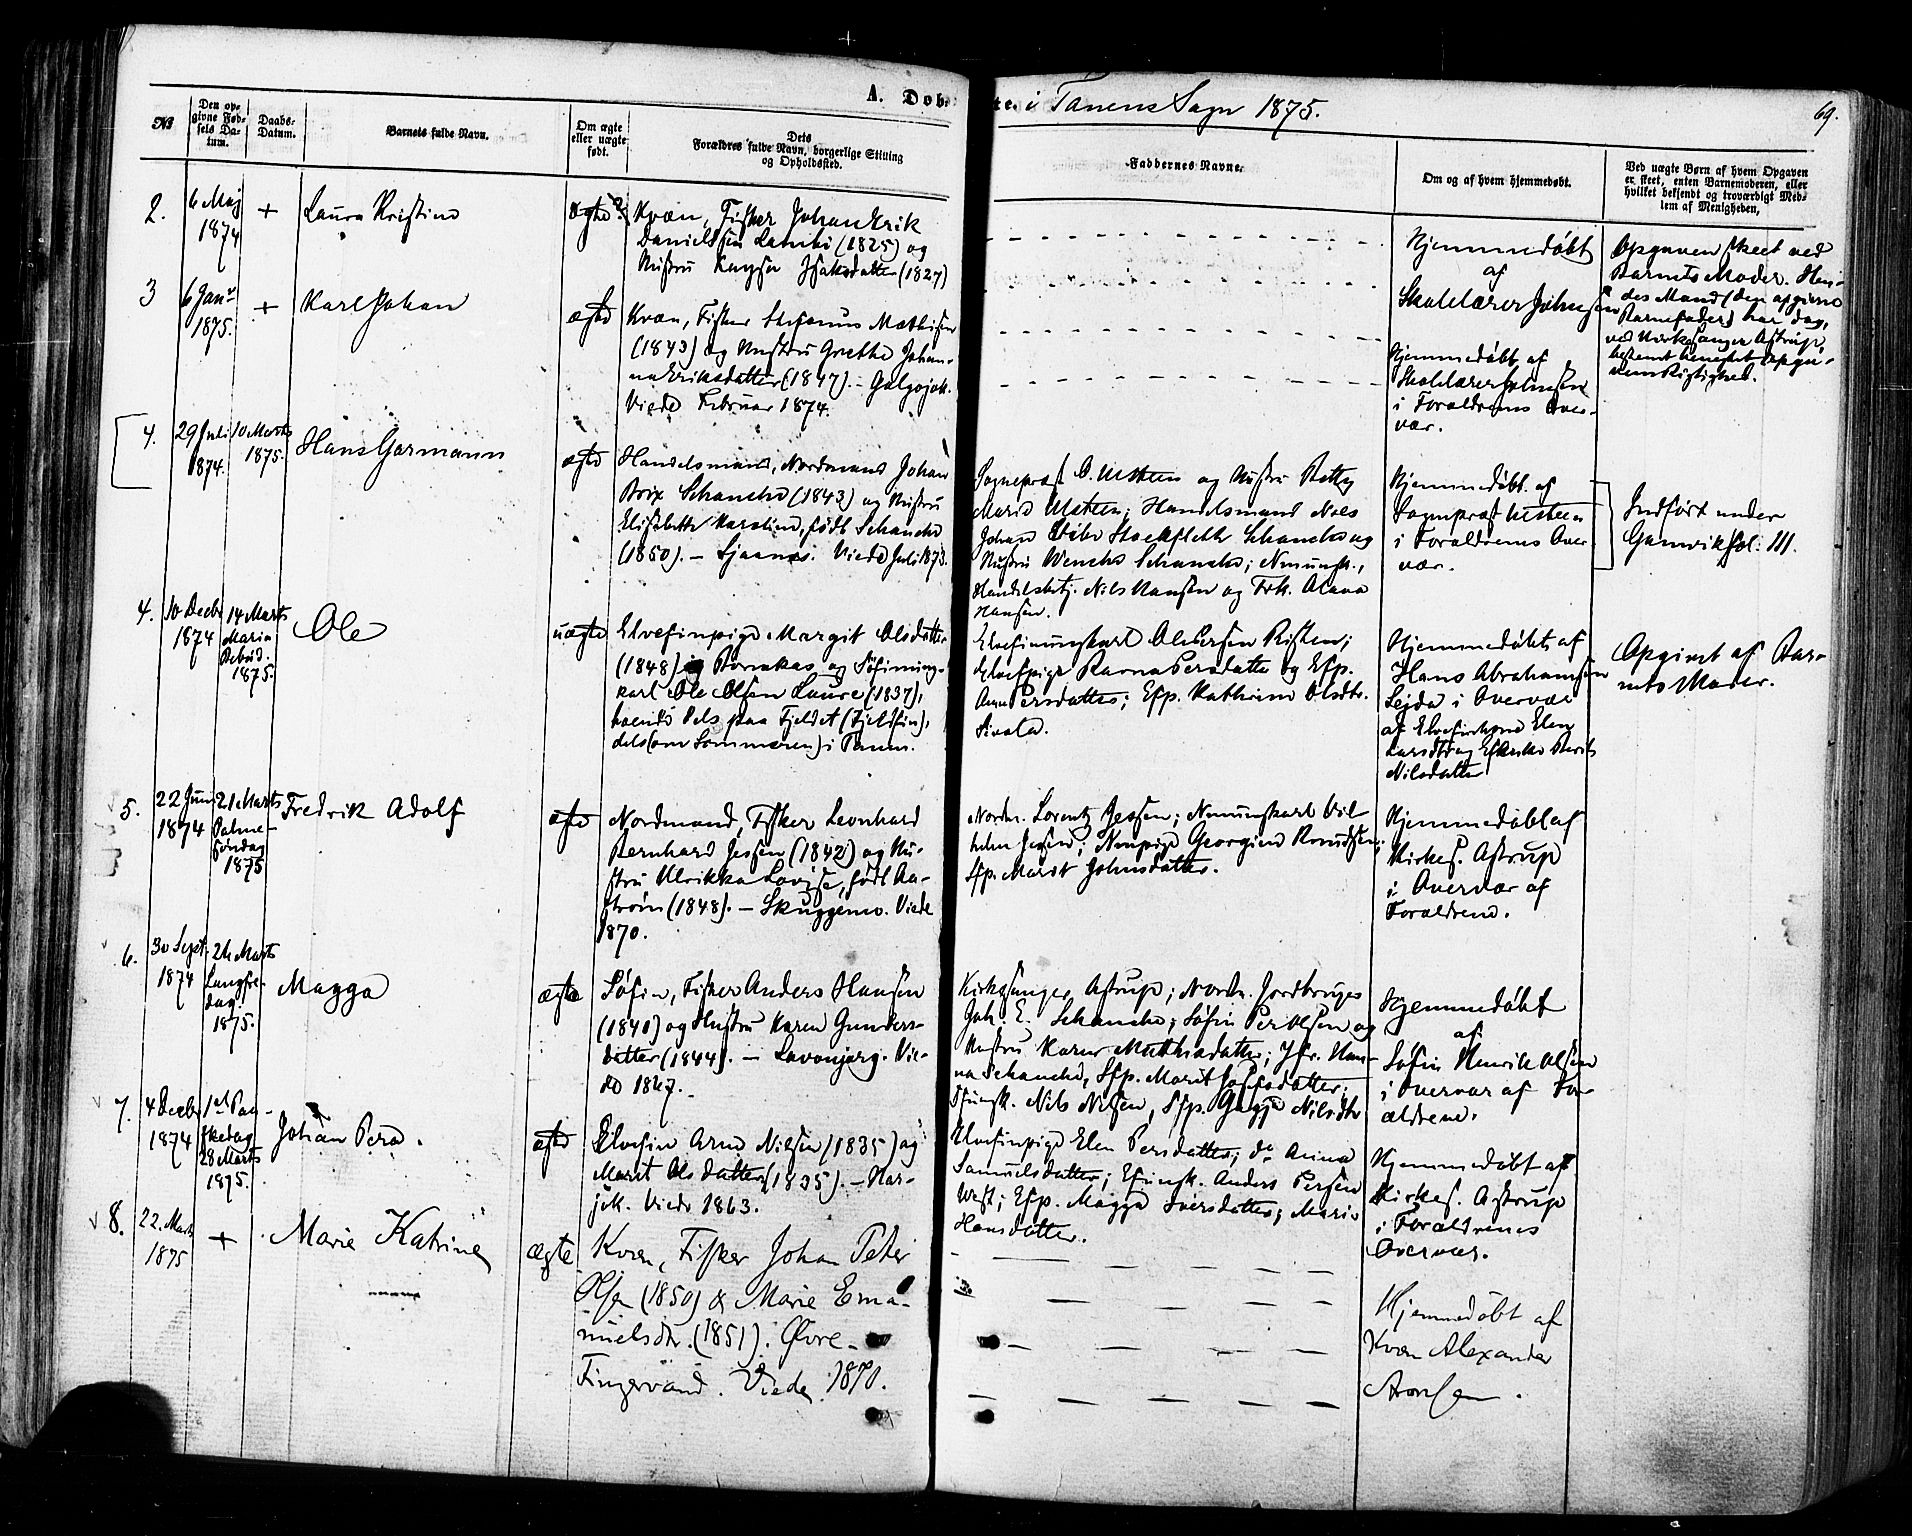 A. Døbte i Tanens Sogn 1875.
69.
No
Den opgivne Fødsels Datum.
Daabs-Datum.
Barnets fulde Navn.
Om ægte eller uægte født.
Dets Forældres fulde Navn, borgerlige Stilling og Opholdssted.
Faddernes Navne.
Om og af hvem hjemmedøbt.
Ved uægte Børn af hvem Opgaven er skeet, enten Barnemoderen, eller hvilket bekjendt og troværdigt Medlem af Menigheden,
2.
6 Maj
1874
+
Laura Kristine
ægte?
Kvæn, Fisker Johan Erik
Danielssen (1825) og
Hustru Isaksdatter (1827)
Hjemmedøbt
af
Skolelærer Johnsen
Opgaven skeet ved
Barnets Moder. Hen-
des Mand (den opgivne
Barnefader) har dog,
ved Kirkesanger Astrup,
benegtet Opga-
vens Rigtighed.
3
6 Janr
1875.
+
Karl Johan
ægte
Kvæn, Fisker Stefanus Mathisen
(1843) og Hustru Grethe Johan-
na Eriksdatter (1847). – Galgojok.
Viede Februar 1874.
Hjemmedøbt af
Skolelærer Johnsen
i Forældrenes Over-
vær.
4.
29 Juli
1874.
10 Marts
1875.
Hans Garmann
ægte
Handelsmand, Nordmand Johan
Brix Schanche (1843) og Hustru
Elisabeth Karoline, født Schanche
(1850). – Sjaanes. Viede Juli 1873.
Sognepræst O. Ulsteen og Hustru Betty
Marie Ulsteen; Handelsmand Niels
Johan Stockfleth Schanche og
Hustru Wenche Schanche; Nmungk.,
Handelsbetj. Nils Hansen og Frk.
Hansen.
Hjemmedøbt af
Sognepræst Ulsteen
i Forældrenes Over
vær.
Indført under
Gamvik fol: 111.
4.
10 Decbr
1874
14 Marts
Maria
Bebud.
1875.
Ole
uægte
Elvefinpige Margit Olsdatter
(1848) i Bonakas og Søfinung-
karl Ole Olsen Laure (1837),
boende dels paa Fjeldet (Fjeldfin),
dels (om Sommeren) i Tanen.
Elvefinungkarl Ole Persen Risten;
Elvefpige Barna Persdatter og Efp.
Ane Persdatter; Efp. Kathrine Olsdtr.
Sivola.
Hjemmedøbt af
Hans Abrahamsen
Lejda i Overvær
af Elvefinkone Elen
Larsdtr og Efkone Berit
Nilsdatter
Opgivet af Bar-
nets Moder.
5.
22 Juni
1874
21 Marts
Palme-
søndag
1875
Fredrik Adolf
ægte
Nordmand, Fisker Leonhard
Bernhard Jessen (1842) og Hu-
stru Ulrikka Lovise, født Aa-
strøm (1848). – Skuggenes. Viede
1870.
Nordm. Lorentz Jessen; Nmungkarl Vil
helm Jessen; Nmpige Georgine Knudsen;
Sfp. Marit Johnsdatter.
Hjemmedøbt af
Kirkes. Astrup
i Overvær af
Forældrene.
6.
30 Sept.
1874
26 Marts
Langfre-
dag
1875.
Magga
ægte
Søfin, Fisker Anders Hansen
(1840) og Hustru Karen Gunders-
datter (1844). – Lavonjarg. Vie-
de 1867.
Kirkesanger Astrup; Nordm. Jordbruger
Joh. E. Schanche; Søfin Per Olsen og
Hustru Karen Mathisdatter; Jfr. Han-
na Schanche, Sfp. Marit Josefsdatter;
Sfungk. Nils Nilsen, Sfp. Gagga Nilsdtr
Hjemmedøbt
af
Søfin Henrik Olsen
i Overvær af For-
ældrene.
7.
4 Decbr
1874
1ste Paa-
skedag
28 Marts
1875.
Johan Pera.
ægte
Elvefin Arne Nilsen (1835) og
Marit Olsdatter (1835). – Kar-
jok. Viede 1863.
Elvefinpige Elen Persdatter; do Anna
Samuelsdatter; Efungk. Anders Persen
West; Efp. Magga Iversdatter; Marie
Hansdatter.
Hjemmedøbt af
Kirkes. Astrup
i Forældrenes
Overvær.
8.
22. Marts
1875
+
Marie Katrine
ægte
Kvæn, Fisker Johan Peter
Olsen (1850) & Marie Ema-
nuelsdtr. (1851). Øvre
Fingervand. Viede 1870.
Hjemmedøbt af
Kvæn Alexander
Aronsen.